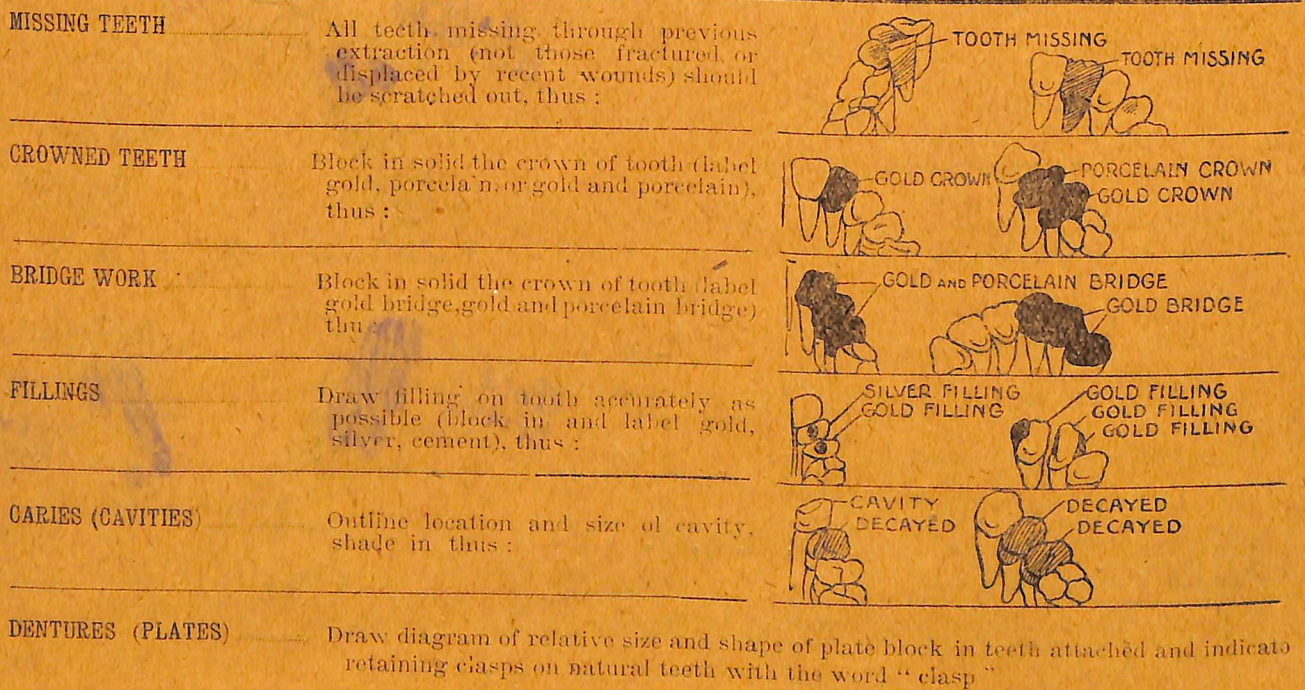 MISSING TEETH All teeth missing through previous
extraction (not those fractured or
displaced by recent wounds) should
be scratched out, thus :
TOOTH MISSING
TOOTH MISSING
CROWNED TEETH Block in solid the crown of tooth (label
gold, porcela n, or gold and porcelain),
thus :
GOLD CROWN
PORCELAIN CROWN
GOLD CROWN
BRIDGE WORK Block in solid the crown of tooth (label
gold bridge, gold and porcelain bridge)
thu :
GOLD AND PORCELAIN BRIDGE
GOLD BRIDGE
FILLINGS Draw filling on tooth accurately as
possible (block in and label gold,
silver, cement), thus :
SILVER FILLING
GOLD FILLING
GOLD FILLING
GOLD FILLING
GOLD FILLING
CARIES (CAVITIES) Outline location and size of cavity,
shade in thus :
CAVITY
DECAYED
DECAYED
DECAYED
DENTURES (PLATES) Draw diagram of relative size and shape of plate block in teeth attached and indicate
retaining clasps on natural teeth with the word " clasp "